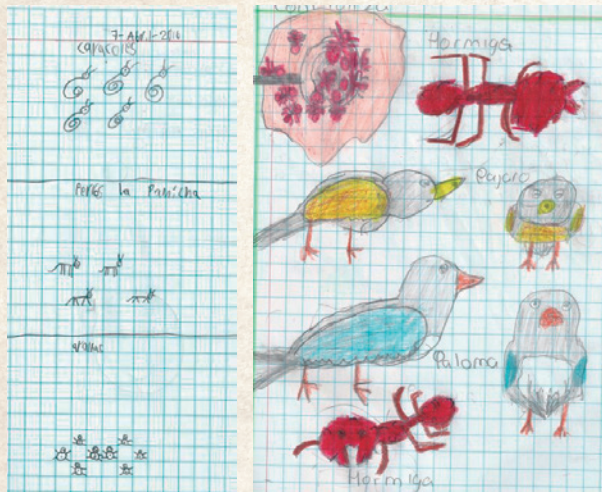 7-Abril-2016
caracoles
Perros la Panicha
Hormiga
Pajaro
Paloma
Hormiga